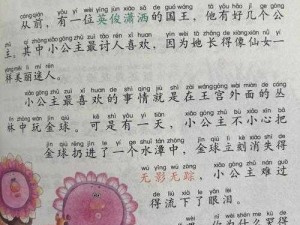 cóng qián yǒu yí wèi yīng jùn xiāo sǎ de guó wáng tā yǒu hǎo jǐ gè gōng
从前，有一位英俊潇洒的国王，他有好几个公
zhǔ qí zhōng xiǎo gōng zhǔ zuì tǎo rén xǐ huan yīn wèi tā zhǎng de xiàng xiān nǚ yí
主，其中小公主最讨人喜欢，因为她长得像仙女一
yàng měi lì mí rén
样美丽迷人。
xiǎo gōng zhǔ zuì xǐ huan de shì qing jiù shì zài wáng gōng wài miàn de cóng
小公主最喜欢的事情就是在王宫外面的丛
lín zhōng wán jīn qiú kě shì yǒu yì tiān xiǎo gōng zhǔ bù xiǎo xīn bǎ
林中玩金球。可是有一天，小公主不小心把
jīn qiú rēng jìn le yí gè shuǐ tán zhōng jīn qiú lì kè xiāo shī de
金球扔进了一个水潭中，金球立刻消失得
wú yǐng wú zōng xiǎo gōng zhǔ nán guò
无影无踪，小公主难过
de liú xià le yǎn lèi
得流下了眼泪。
nǐ wèi shén me kū
你为什么哭